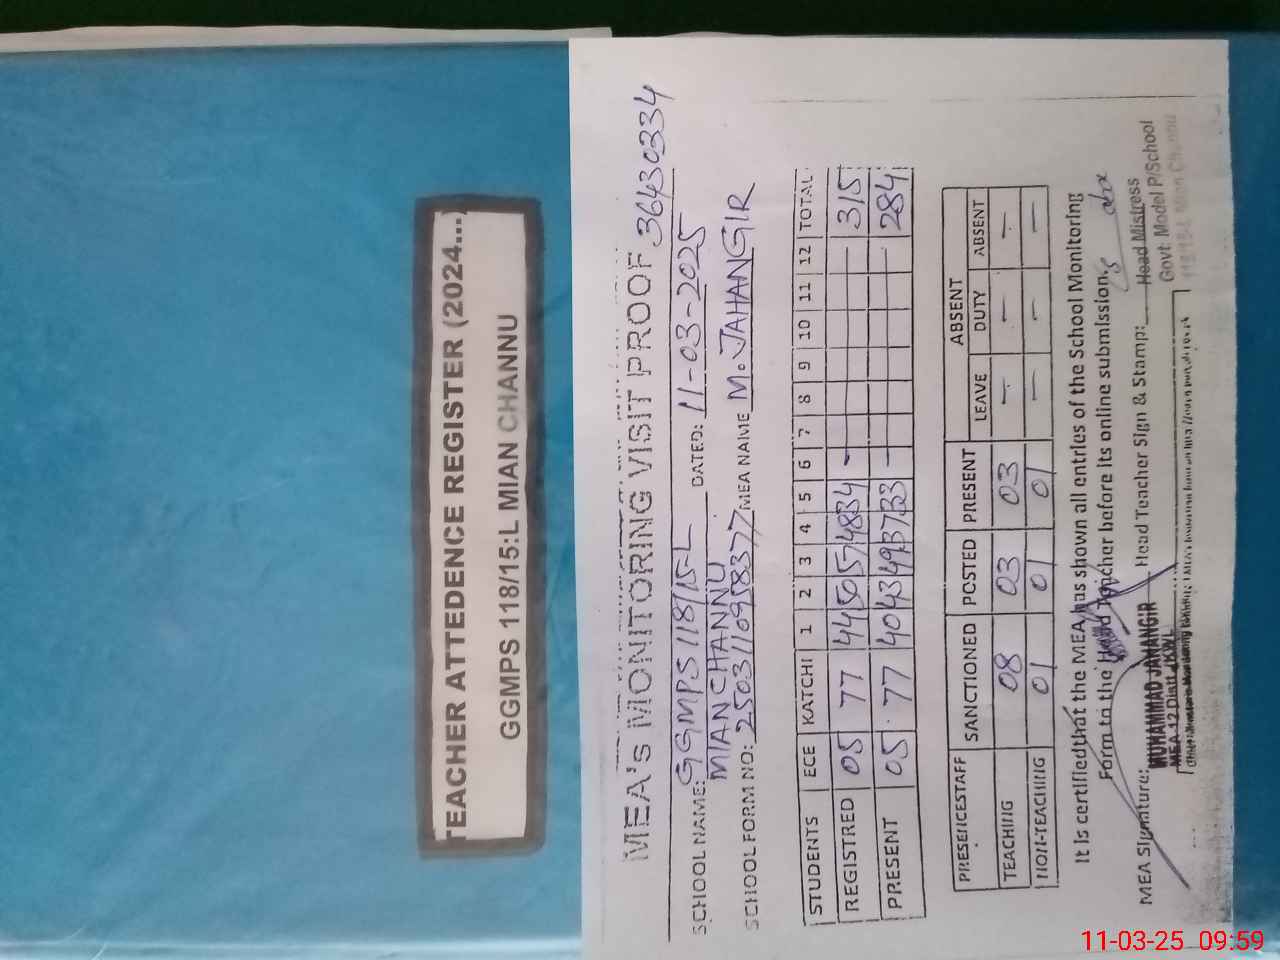 TEACHER ATTEDENCE REGISTER (2024...)
GGMPS 118/15:L MIAN CHANNU
MEA's MONITORING VISIT PROOF 36430334
SCHOOL NAME: GGMPS 118/15-L DATED: 11-03-2025
MIAN CHANNU
SCHOOL FORM NO: 2503110958377 MEA NAME M. JAHANGIR
STUDENTS ECE KATCHI 1 2 3 4 5 6 7 8 9 10 11 12 TOTAL
REGISTRED 05 77 44 50 57 48 34 - — 315
PRESENT 05 77 40 43 49 37 33 — — 284
PRESENCESTAFF SANCTIONED POSTED PRESENT ABSENT
LEAVE DUTY ABSENT
TEACHING 08 03 03 — — —
NON-TEACHING 01 01 01 — — —
It is certified that the MEA has shown all entries of the School Monitoring
Form to the Head Teacher before its online submission.
MEA Signature: Head Teacher Sign & Stamp: Head Mistress
MUHAMMAD JAHANGIR Govt Model P/School
MEA-12 Distt KWL 118/15-L Mian Channu
11-03-25 09:59